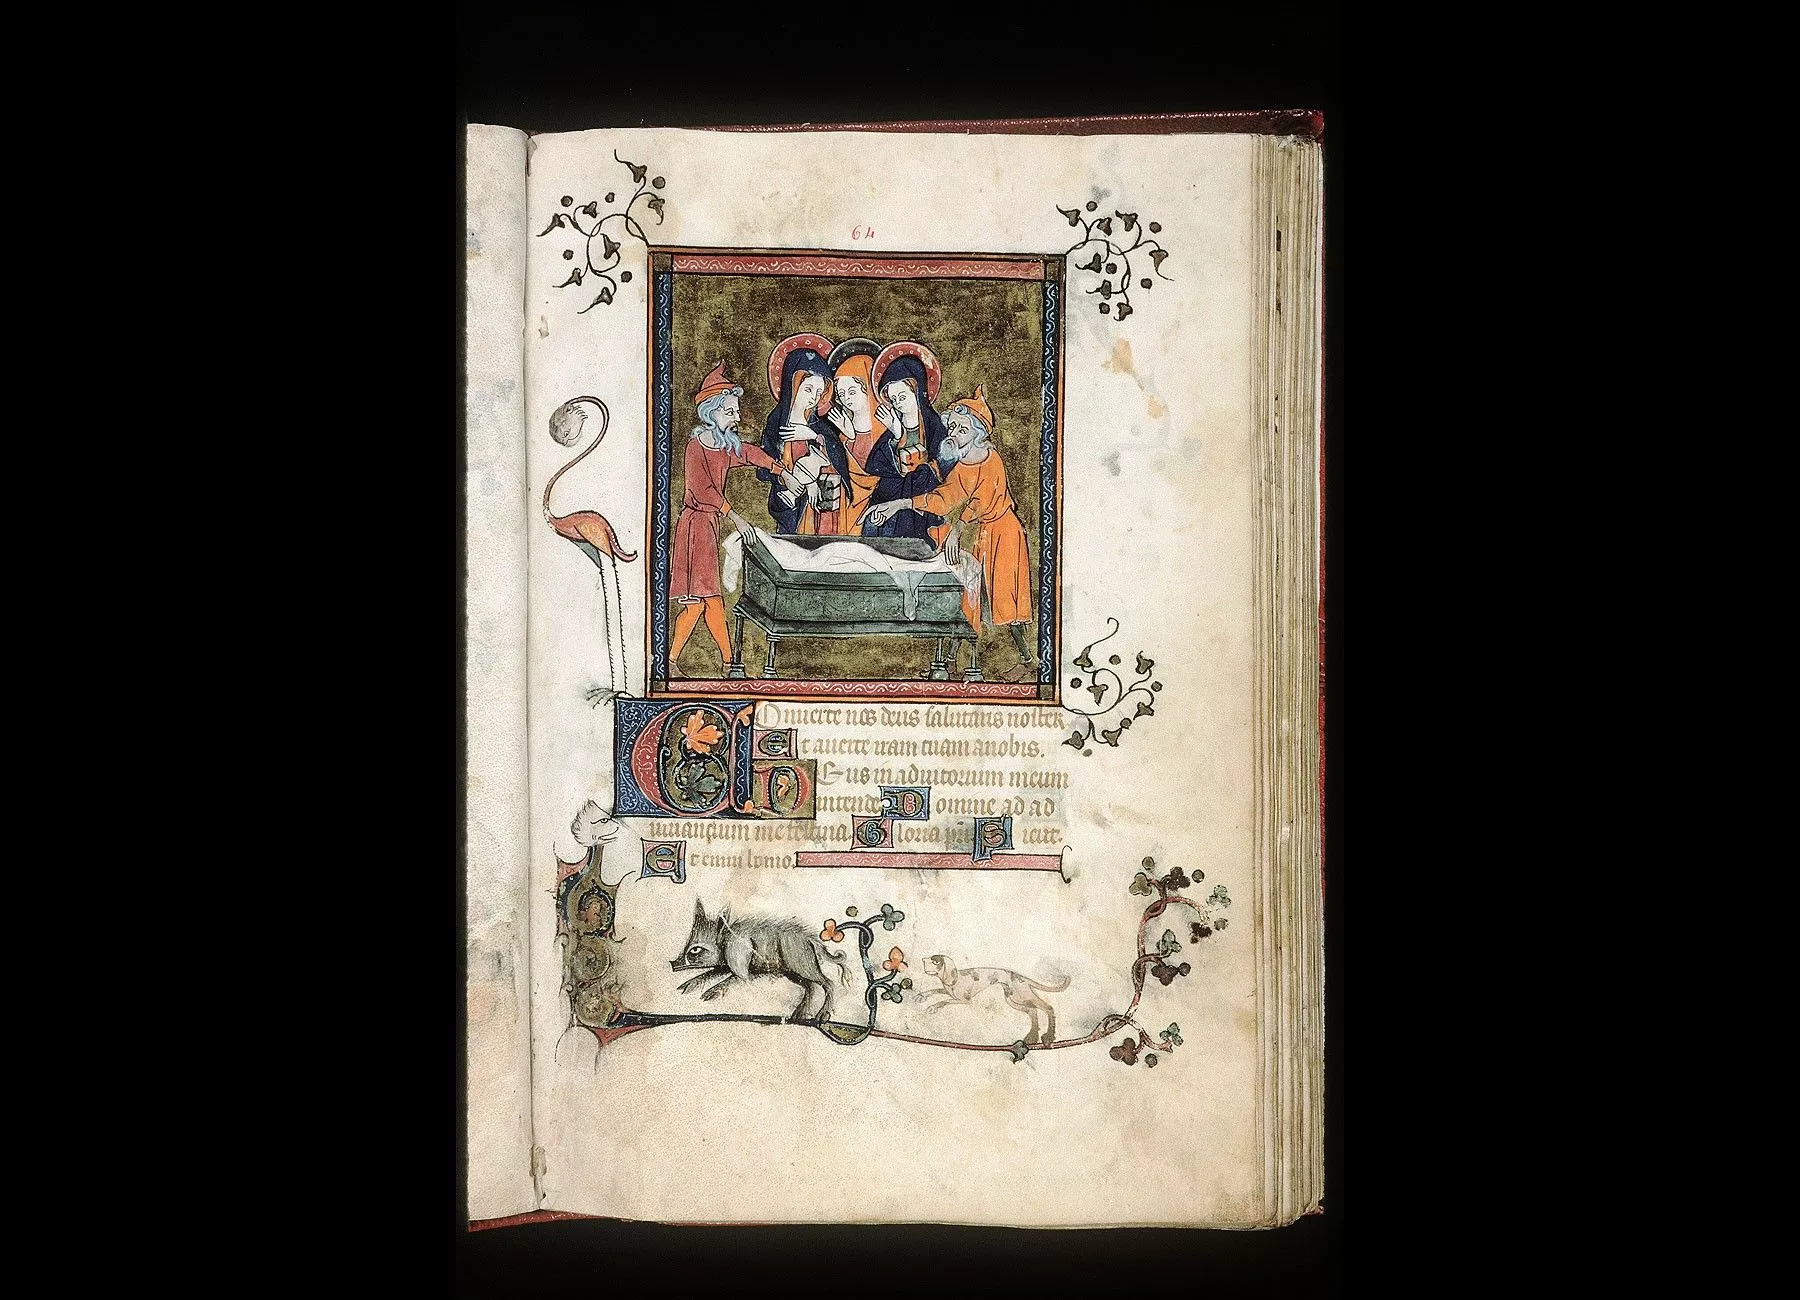 64
Conuerte nos deus salutaris noster
Et auerte iram tuam a nobis.
Deus in adiutorium meum
intende Domine ad ad
iuuandum me festina Gloria pri Sicut.
Et cum lomo.